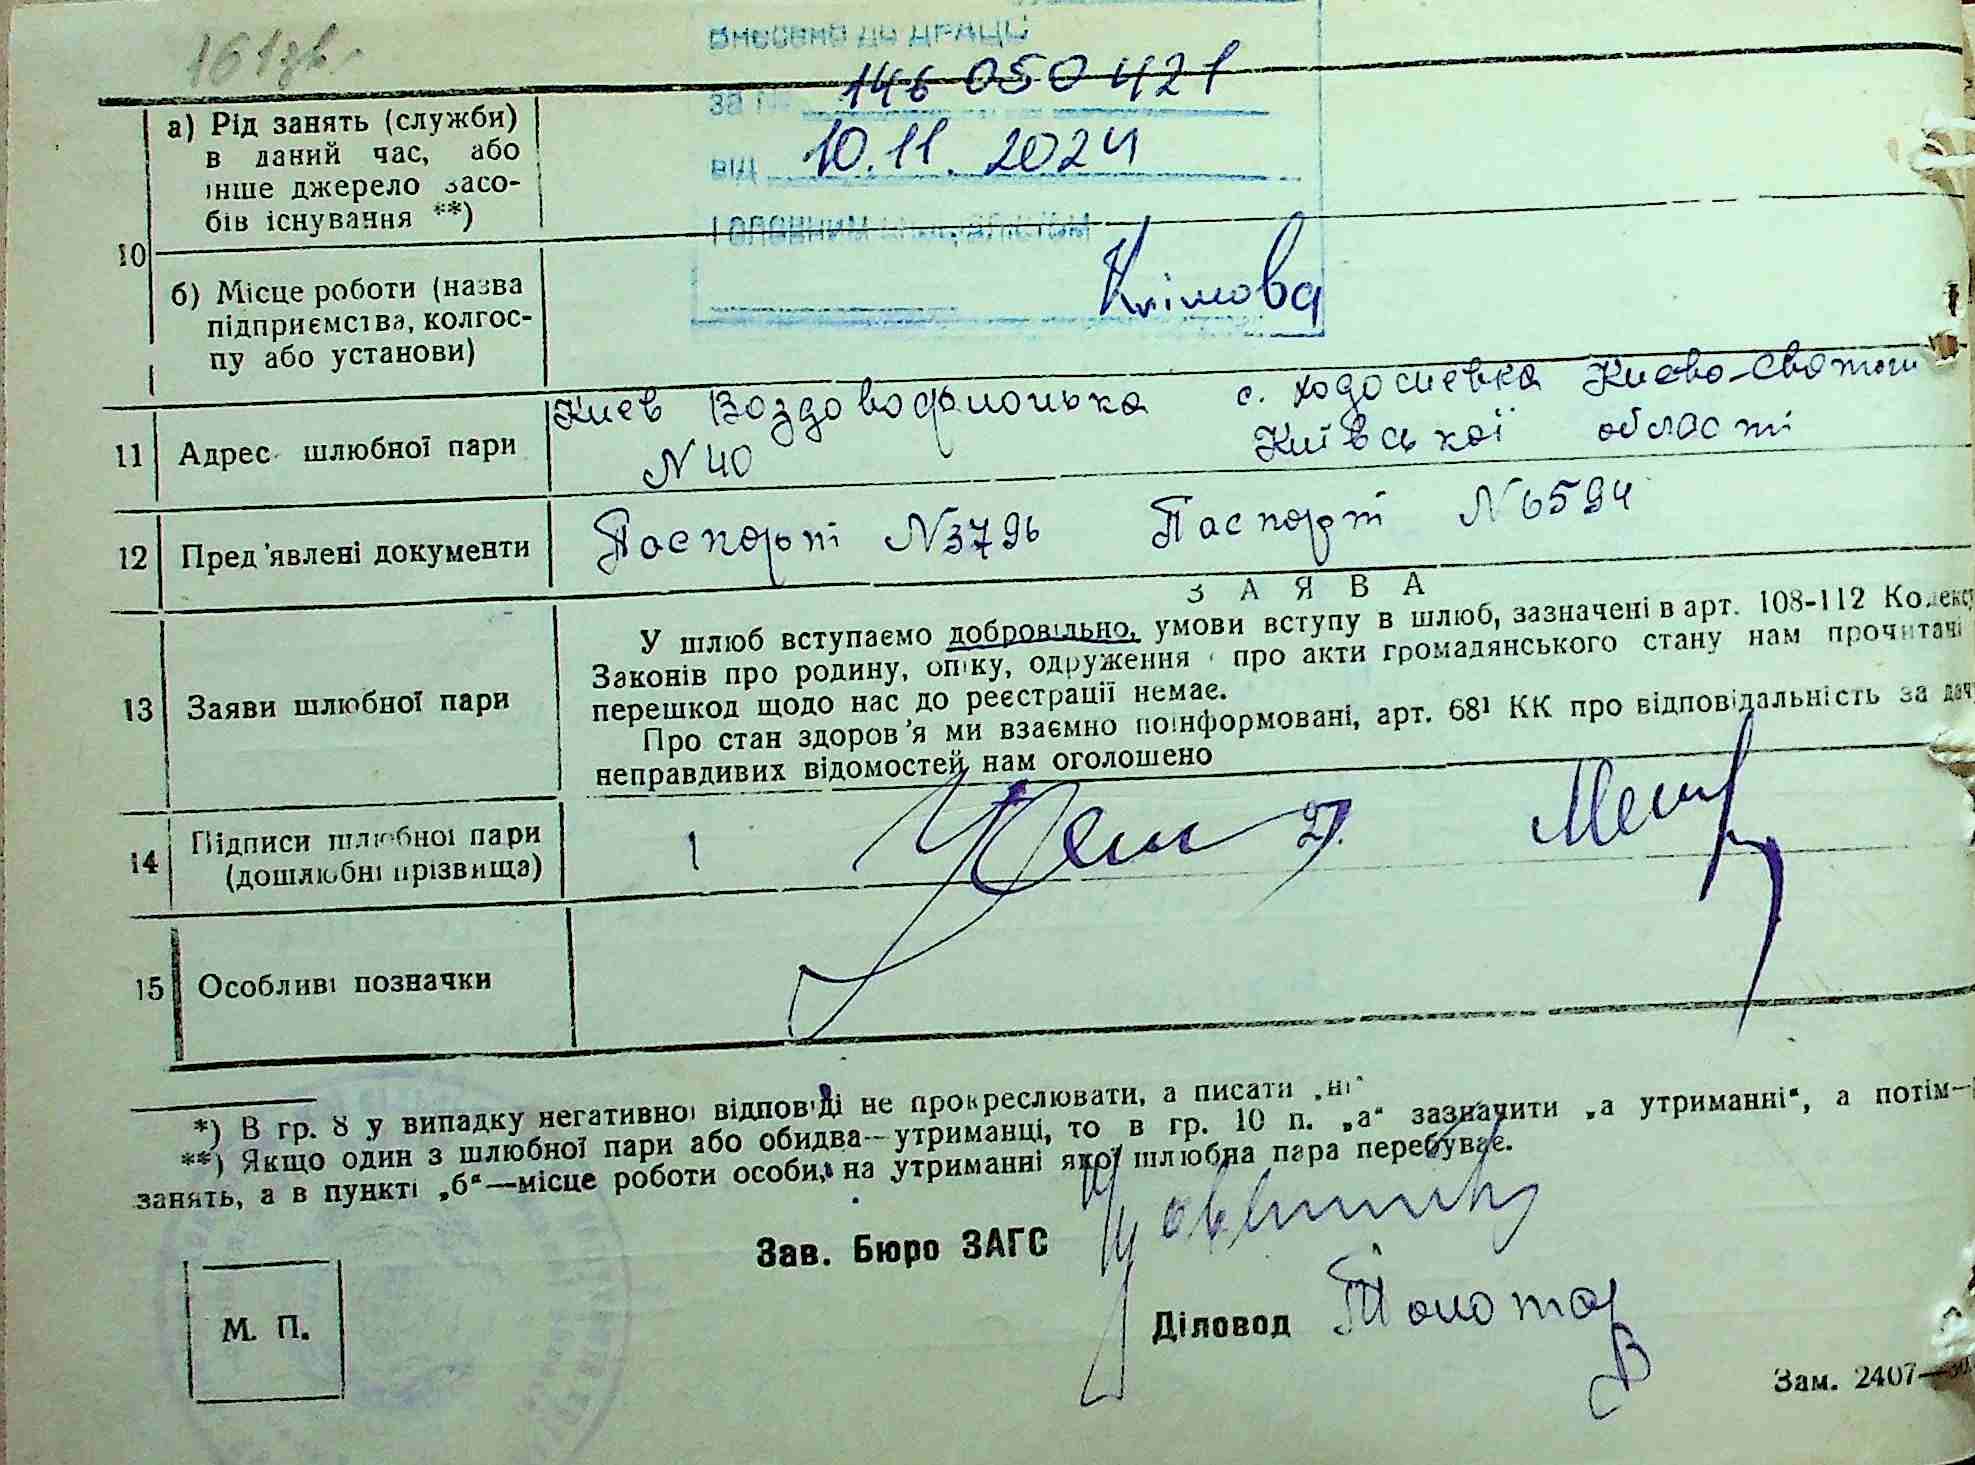 161зв.
Внесено до ДРАЦС
за № 146 050 421
від 10.11.2024
Головним спеціалістом
Клімова
10
а) Рід занять (служби)
в даний час, або
інше джерело засо-
бів існування **)
б) Місце роботи (назва
підприємства, колгос-
пу або установи)
11 Адрес шлюбної пари
Киев
N 40
с. Ходосиевка Києво-Святош
Київської області
12 Пред'явлені документи
Паспорт N3796 Паспорт N6594
13 Заяви шлюбної пари
ЗАЯВА
У шлюб вступаємо добровільно, умови вступу в шлюб, зазначені в арт. 108-112 Кодексу
Законів про родину, опіку, одруження і про акти громадянського стану нам прочитані
перешкод щодо нас до реєстрації немає.
Про стан здоров'я ми взаємно поінформовані, арт. 68¹ КК про відповідальність за дачу
неправдивих відомостей нам оголошено
14 Підписи шлюбної пари
(дошлюбні прізвища)
15 Особливі позначки
*) В гр. 8 у випадку негативної відповіді не прокреслювати, а писати „ні“
**) Якщо один з шлюбної пари або обидва—утриманці, то в гр. 10 п. „а“ зазначити „а утриманні“, а потім—
занять, а в пункті „б“—місце роботи особи, на утриманні якої шлюбна пара перебуває.
Зав. Бюро ЗАГС
Діловод
М. П.
Зам. 2407—